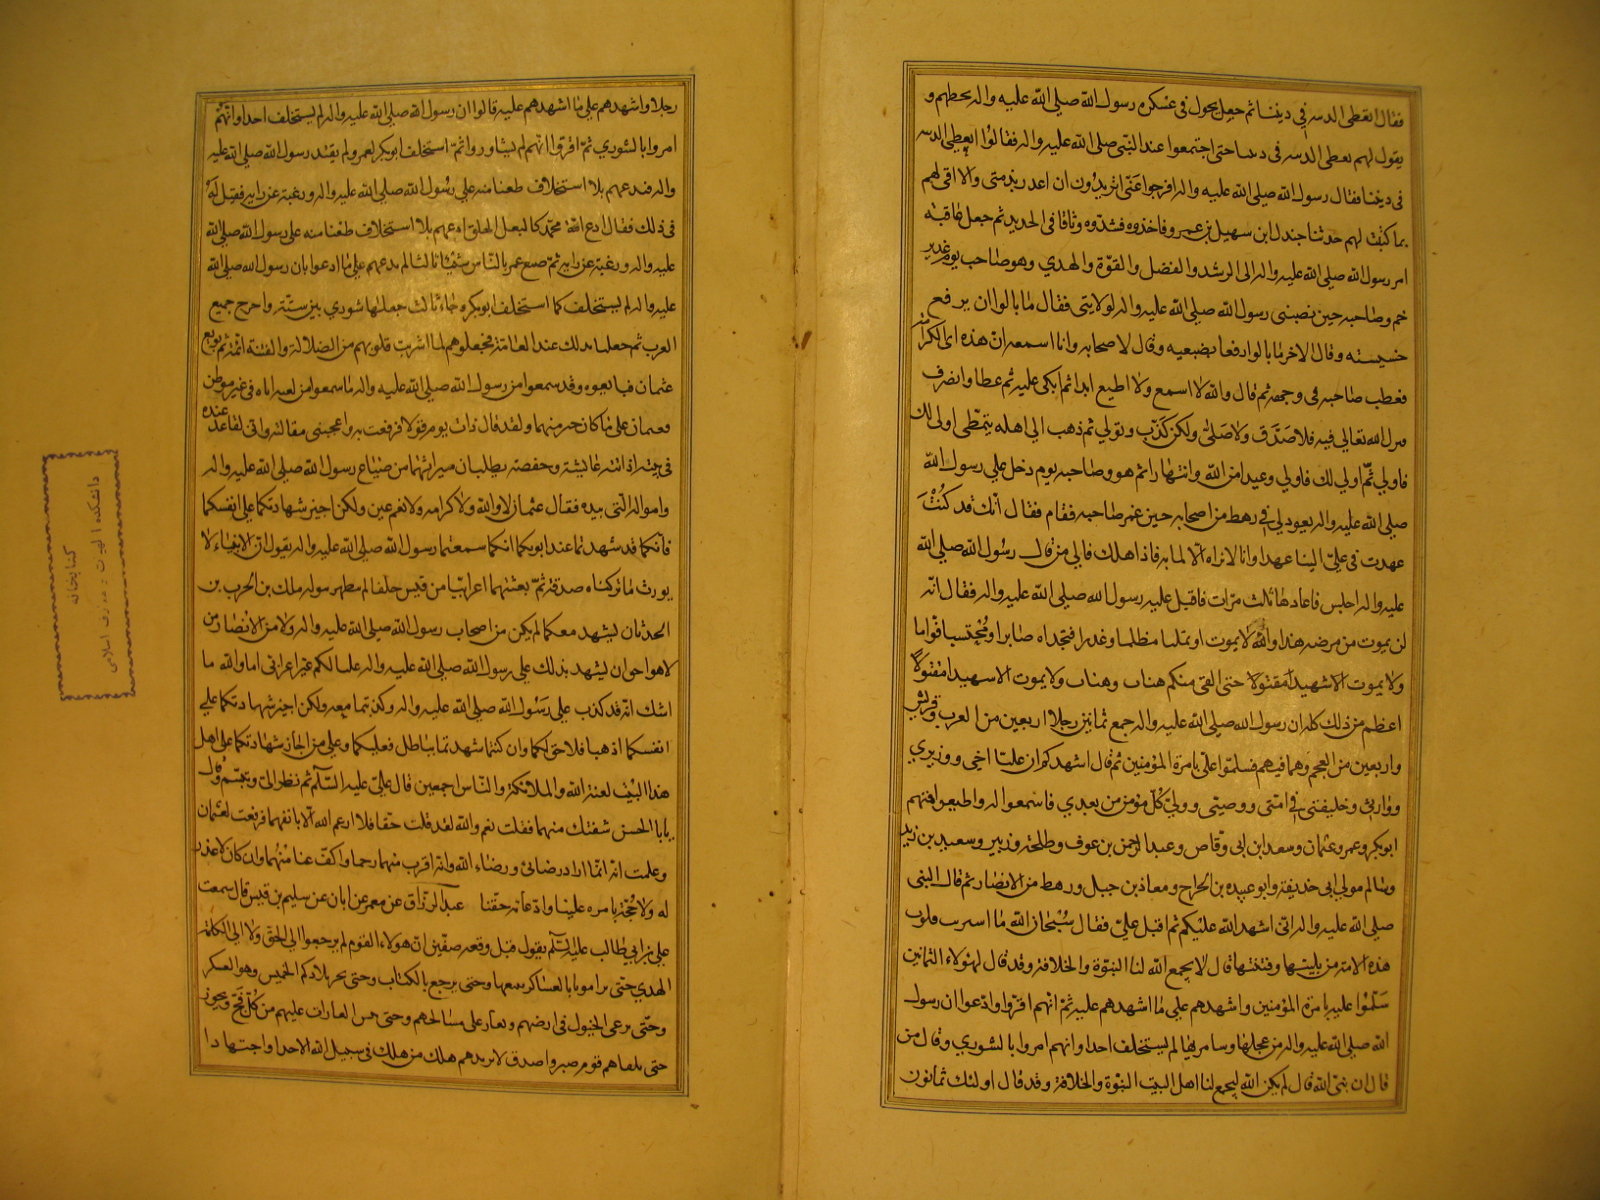 فقال انعطى الدنيه في ديننا ثم جعل يجول في عسكر رسول الله صلى الله عليه واله يحطهم و
يقول لهم نعطى الدنيه فى ديننا حتى اجتمعوا عند النبى صلى الله عليه واله فقالوا انعطى الدنيه
فى ديننا فقال رسول الله صلى الله عليه واله افرجوا عنى اتريدون ان اعدر بذمتى ولا افى لهم
بما كتبت لهم خذ ثنا جندل ابن سهيل بن عمرو فاخذوه فشدّوه وثاقا فى الحديد ثم جعل عاقبه
امر رسول الله صلى الله عليه واله الى الرشد والفضل والقوّة والهدى وهو صاحب يوم غدير
خم وصاحبه حين نصبنى رسول الله صلى الله عليه واله لولايتى فقال ما بالوا ان يرفع
خسيسته وقال الاخر ما بالوا رفعا بضبعيه وقال لاصحابه وانا اسمعه ان هذه اى الكرامة
فقطب صاحبه فى وجهه ثم قال والله لا اسمع ولا اطيع ابدا ثم ابكى عليه ثم عطا وانصرف
فنزل الله تعالى فيه فلا صدّق ولا صلّى ولكن كذّب وتولى ثم ذهب الى اهله يتمطّى اولى لك
فاولى ثمّ اولى لك فاولى وعيد امن الله وانتهارا ثم هو وصاحبه يوم دخل على رسول الله
صلى الله عليه واله يعود لى فى رهط من اصحابه حين غمر صاحبه فقام فقال انّك قد كنت
عهدت فى علىّ الينا عهدا وانا لانراه الّا لما به فاذا هلك فالى من قال رسول الله صلى الله
عليه واله اجلس فاعادها ثالث مرّات فاقبل عليه رسول الله صلى الله عليه واله فقال انّه
لن يموت من مرضه هذا والله لا يموت او تملنا مظلما وغدرا فتجداه صابرا ومحتسبا قواما
ولا يموت الا شهيدا مقتولا حتى القى منكم هنات وهنات ولا يموت الا شهيدا مقتولا
اعظم من ذلك كله ان رسول الله صلى الله عليه واله جمع ثمانين رجلا اربعين من العرب وقريش
واربعين من العجم وهما فيهم فسلّموا علىّ بامرة المؤمنين ثم قال اشهدكم ان عليّا اخى ووزيرى
ووارثى وخليفتى فى امّتى ووصيّى وولىّ كلّ مؤمن من بعدى فاسمعوا له واطيعوا فيهم
ابوبكر وعمر وعثمان وسعد ابن ابى وقاص وعبد الرّحمن بن عوف وطلحة وزبير وسعيد بن زيد
وسالم مولى ابى حذيفة وابو عبيده بن الجراح ومعاذ بن جبل ورهط من الانصار ثم قال النبى
صلى الله عليه واله انى اشهد الله عليكم ثم اقبل علىّ فقال سبحان الله ما اسربت قلوب
هذه الامّة من بليتها وفتنتها قال لا يجمع الله لنا النبوّة والخلافة وقد قال لهؤلاء الثمانين
سلّموا عليه بامرة المؤمنين واشهدهم على ما اشهدهم عليه ثمّ انهم اقرّوا وادّعوا ان رسول
الله صلى الله عليه واله من عجلها وسامريها لم يستخلف احدا وانهم امروا بالشورى وقال من
قال ان نبىّ الله قال لم يكن الله ليجمع لنا اهل البيت النبوّة والخلافة وقد قال اولئك ثمانون
رجلا واشهدهم على ما اشهدهم عليه قالوا ان رسول الله صلى الله عليه واله لم يستخلف احدا وانّهم
امروا بالشورى ثمّ اقرّوا انّهم لم يشاوروا ثمّ استخلف ابوبكر لعمر ولم يقتد رسول الله صلى الله عليه
واله فندعهم بلا استخلاف طعنا منه على رسول الله صلى الله عليه واله ورغبة عن رايه فقيل له
فى ذلك فقال ادع امّة محمّد كالنعل الخلق ادعهم بلا استخلاف طعنا منه على رسول الله صلى الله
عليه واله ورغبة عن رايه ثمّ صنع عمر بالنّاس شيئا ثالثا لم يدعهم على ما ادعوا بان رسول الله صلى الله
عليه واله لم يستخلف كما استخلف ابوبكر وجاء ثالث جعلها شورى بين ستّة واخرج جميع
العرب ثم جعلها بذلك عند العامّة فجعلوهم لما اشربت قلوبهم من الضلالة والفتنة ائمّة ثم بويع
عثمان فبايعوه وقد سمعوا من رسول الله صلى الله عليه واله ما سمعوا من لعنه اياه فى غير موطن
فعثمان على ما كان خير منهما ولقد قال ذات يوم قولا فرقعت به واعجبنى مقالته وانى لقاعد عنده
فى بيته اذ اتته عايشة وحفصه يطلبان ميراثهما من ضياع رسول الله صلى الله عليه واله
وامواله الّتى بيده فقال عثمان لا والله ولا كرامه ولا نعم عين ولكن اجيز شهادتكما على انفسكما
فانّكما قد شهدتما عند ابويكما انّكما سمعتما رسول الله صلى الله عليه واله يقول انّ الانبياء لا
يورث ما تركناه صدقة ثمّ بعثتهما اعرابيّا من قيس حلفا لم مطهر سوله ملك بن الحرب بن
الحدثان ليشهد معكما لم يكن من اصحاب رسول الله صلى الله عليه واله ولا من الانصار من
لاهوا حوان يشهد بذلك على رسول الله صلى الله عليه واله علنا لكم غير اعرابى اما والله ما
اشك انّه قد كذب على رسول الله صلى الله عليه واله وكذبتما معه ولكن اجيز شهادتكما على
انفسكما اذهبا فلا حق لكما وان كنتما شهدتما بباطل فعليكما وعلى من اجاز شهادتكما على اهل
هذا البيت لعنة الله والملائكة والنّاس اجمعين قال علىّ عليه السّلام ثم نظر الىّ وتبسّم وقال
يا ابا الحسن شفتك منهما فقلت نعم والله لقد قلت حقّا فلا ارغم الله الّا بانفهما فرقعت لعثمان
وعلمت انّه انّما اراد رضائى ورضاء الله وانّه اقرب منهما رحما واكفّ عنّا منهما وان كان لا عذر
له ولا حجّة بامره علينا وادّعائه حقّنا عبد الرّزاق عن معمر عن ابان عن سليم بن قيس قال سمعت
على بن ابي طالب عليه السّلام يقول قبل وقعه صفّين انّ هولاء القوم لم يرجعوا الى الحق ولا الى الكلمة
الهدى حتى يراموا بالعساكر تتبعها وحتى يرجع بالكتاب وحتى يحر بلادكم الخميس وهو العسكر
وحتّى يرعى الخيول فى ارضهم ويغار على مسالحهم وحتى يشن الغارات عليهم من كلّ فجّ وبحور
حتى يلقاهم قوم صبر واصدق لا يزيدهم هلاك من هلك فى سبيل الله الا جدا واجتهادا
كتابخانه
دانشكده الهيات و معارف اسلامى